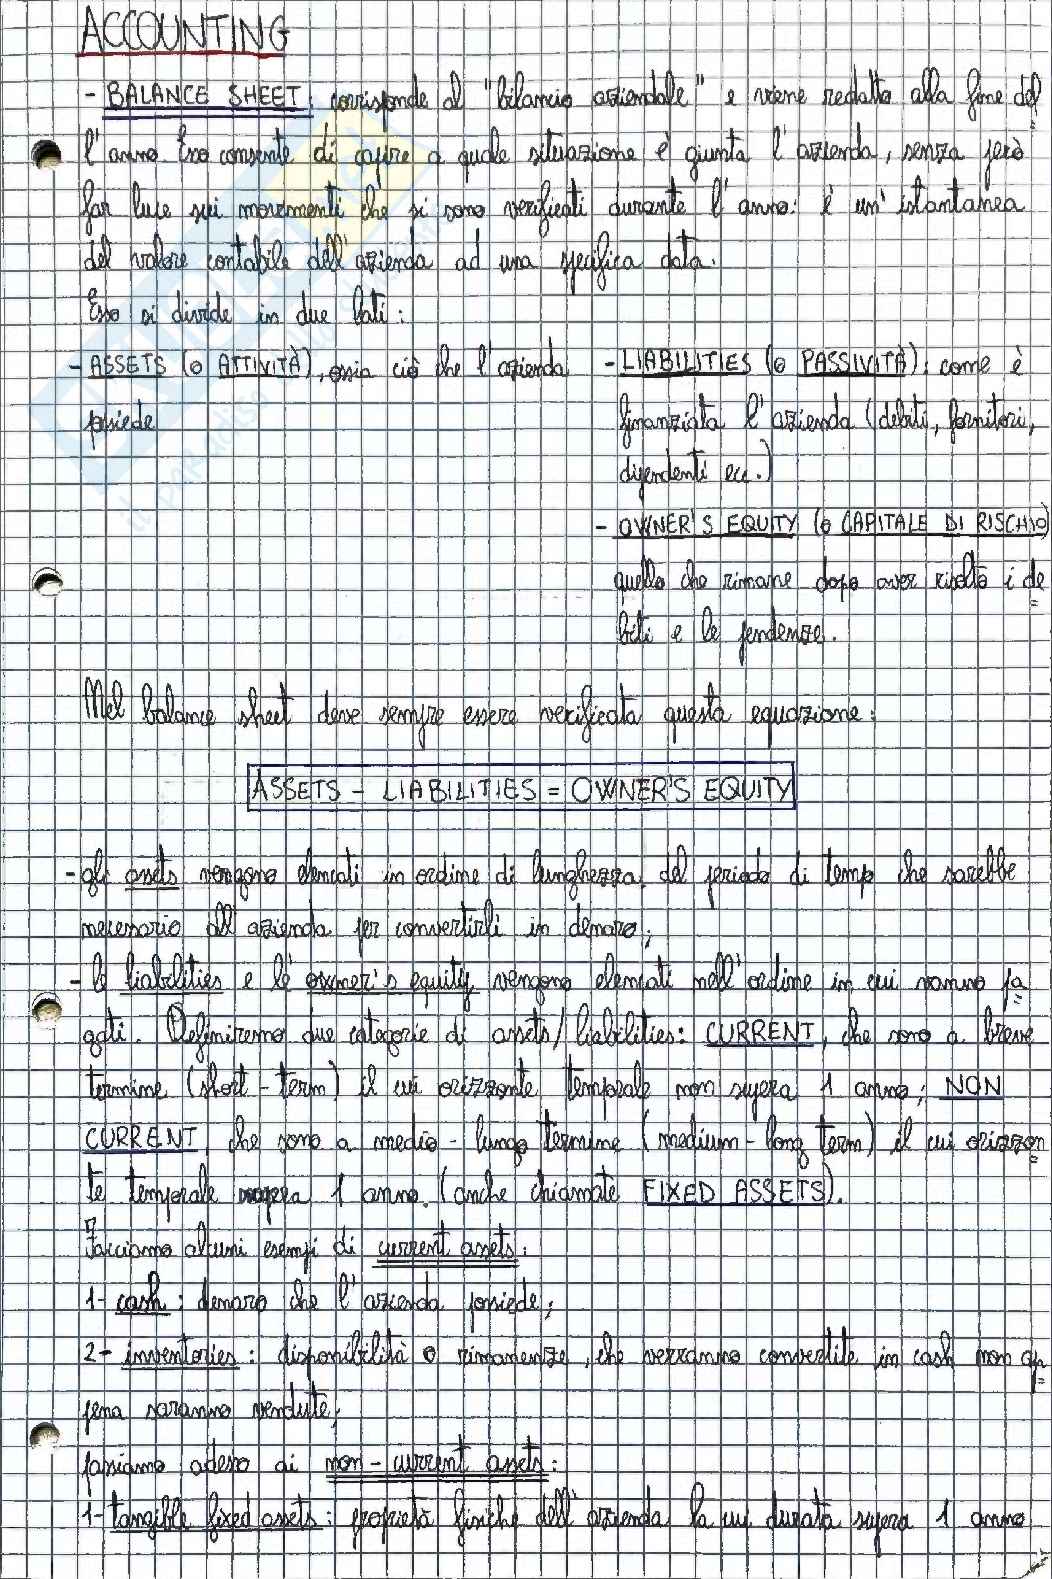 ACCOUNTING
- BALANCE SHEET: corrisponde al "bilancio aziendale" e viene redatto alla fine del
l'anno. Esso consente di capire a quale situazione è giunta l'azienda, senza però
far luce sui movimenti che si sono verificati durante l'anno: è un'istantanea
del valore contabile dell'azienda ad una specifica data.
Esso si divide in due lati:
- ASSETS (o ATTIVITÀ), ossia ciò che l'azienda
possiede
- LIABILITIES (o PASSIVITÀ): come è
finanziata l'azienda (debiti, fornitori,
dipendenti ecc.)
- OWNER'S EQUITY (o CAPITALE DI RISCHIO)
quello che rimane dopo aver risolto i de
biti e le pendenze.
Nel balance sheet deve sempre essere verificata questa equazione:
ASSETS - LIABILITIES = OWNER'S EQUITY
- gli assets vengono elencati in ordine di lunghezza del periodo di temp che sarebbe
necessario all'azienda per convertirli in denaro;
- le liabilities e le owner's equity vengono elencati nell'ordine in cui vanno pa
gati. Definiremo due categorie di assets/liabilities: CURRENT, che sono a breve
termine (short-term) il cui orizzonte temporale non supera 1 anno; NON
CURRENT che sono a medio-lungo termine (medium-long term) il cui orizzon
te temporale supera 1 anno (anche chiamate FIXED ASSETS).
Facciamo alcuni esempi di current assets:
1- cash: denaro che l'azienda possiede;
2- inventories: disponibilità o rimanenze, che verranno convertite in cash non ap
pena saranno vendute;
passiamo adesso ai non-current assets:
1- tangible fixed assets: proprietà fisiche dell'azienda la cui durata supera 1 anno